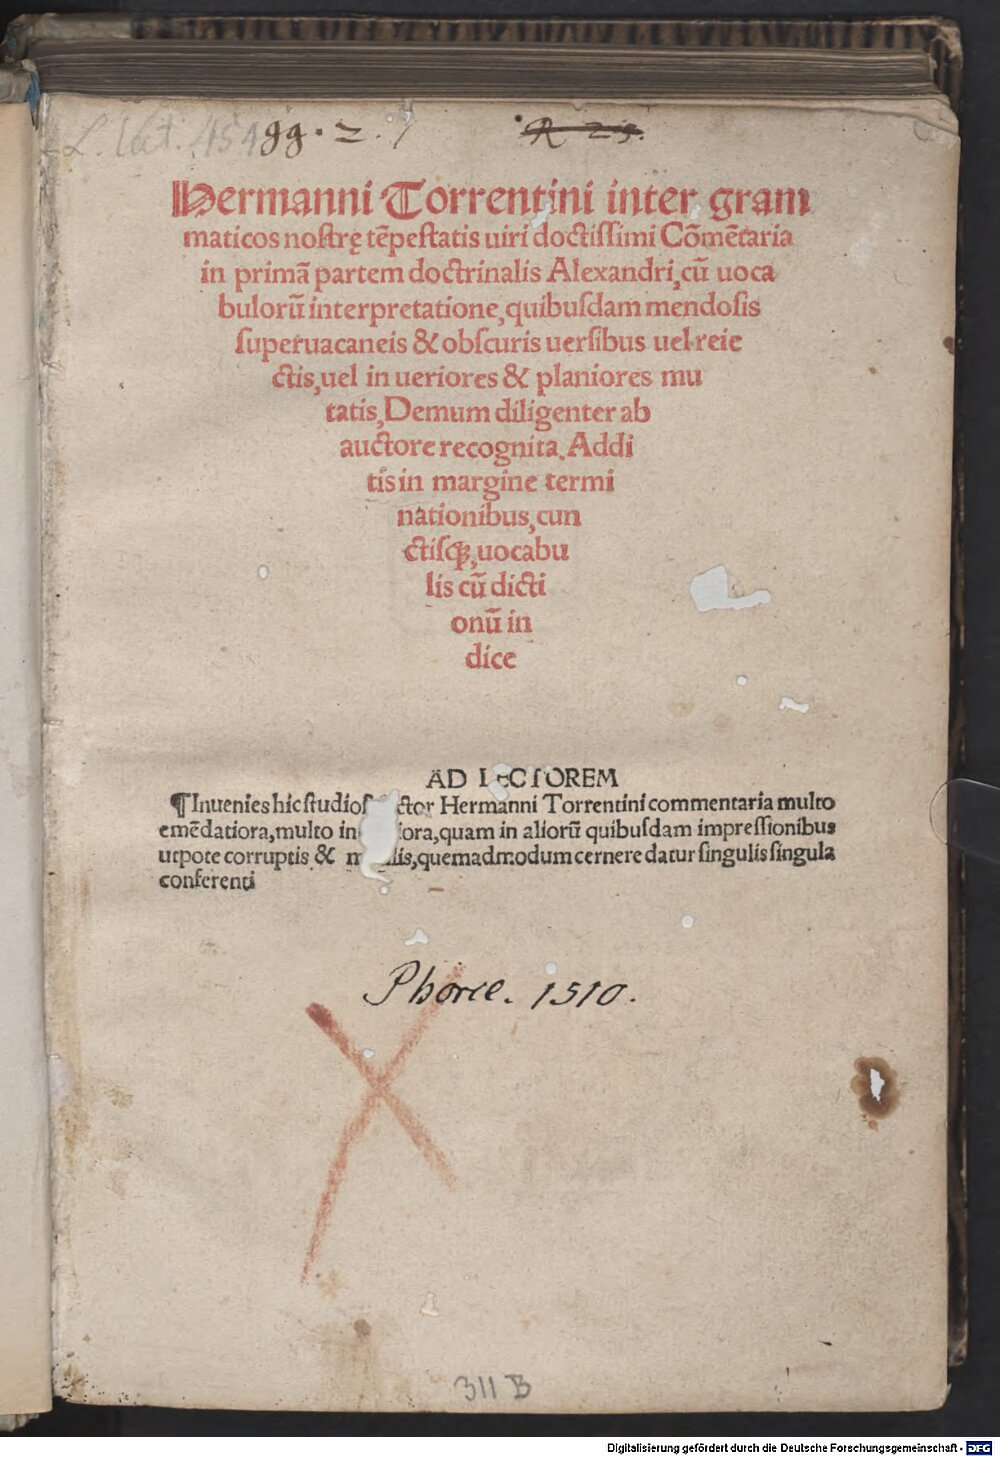 L. lat. 454 gg. 2. R 25.
Hermanni Torrentini inter gram
maticos nostrę tēpestatis uiri doctissimi Cōmētaria
in primā partem doctrinalis Alexandri, cū uoca
bulorū interpretatione, quibusdam mendosis
superuacaneis & obscuris uersibus uel reie
ctis, uel in ueriores & planiores mu
tatis, Demum diligenter ab
auctore recognita. Addi
tis in margine termi
nationibus, cun
ctisq;, uocabu
lis cū dicti
onū in
dice
AD LECTOREM
¶ Inuenies hic studios ctor Hermanni Torrentini commentaria multo
emēdatiora, multo in ora, quam in aliorū quibusdam impressionibus
utpote corruptis & m lis, quemadmodum cernere datur singulis singula
conferenti
Phorce. 1510.
311 B
Digitalisierung gefördert durch die Deutsche Forschungsgemeinschaft - DFG